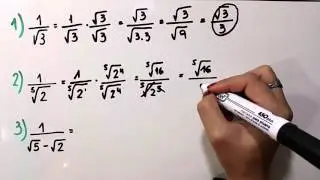 1) 1/√3 = 1/√3 · √3/√3 = √3/√(3.3) = √3/√9 = √3/3
2) 1/⁵√2 = 1/⁵√2¹ · ⁵√2⁴/⁵√2⁴ = ⁵√16/⁵√2⁵ = ⁵√16/
3) 1/(√5 - √2) =